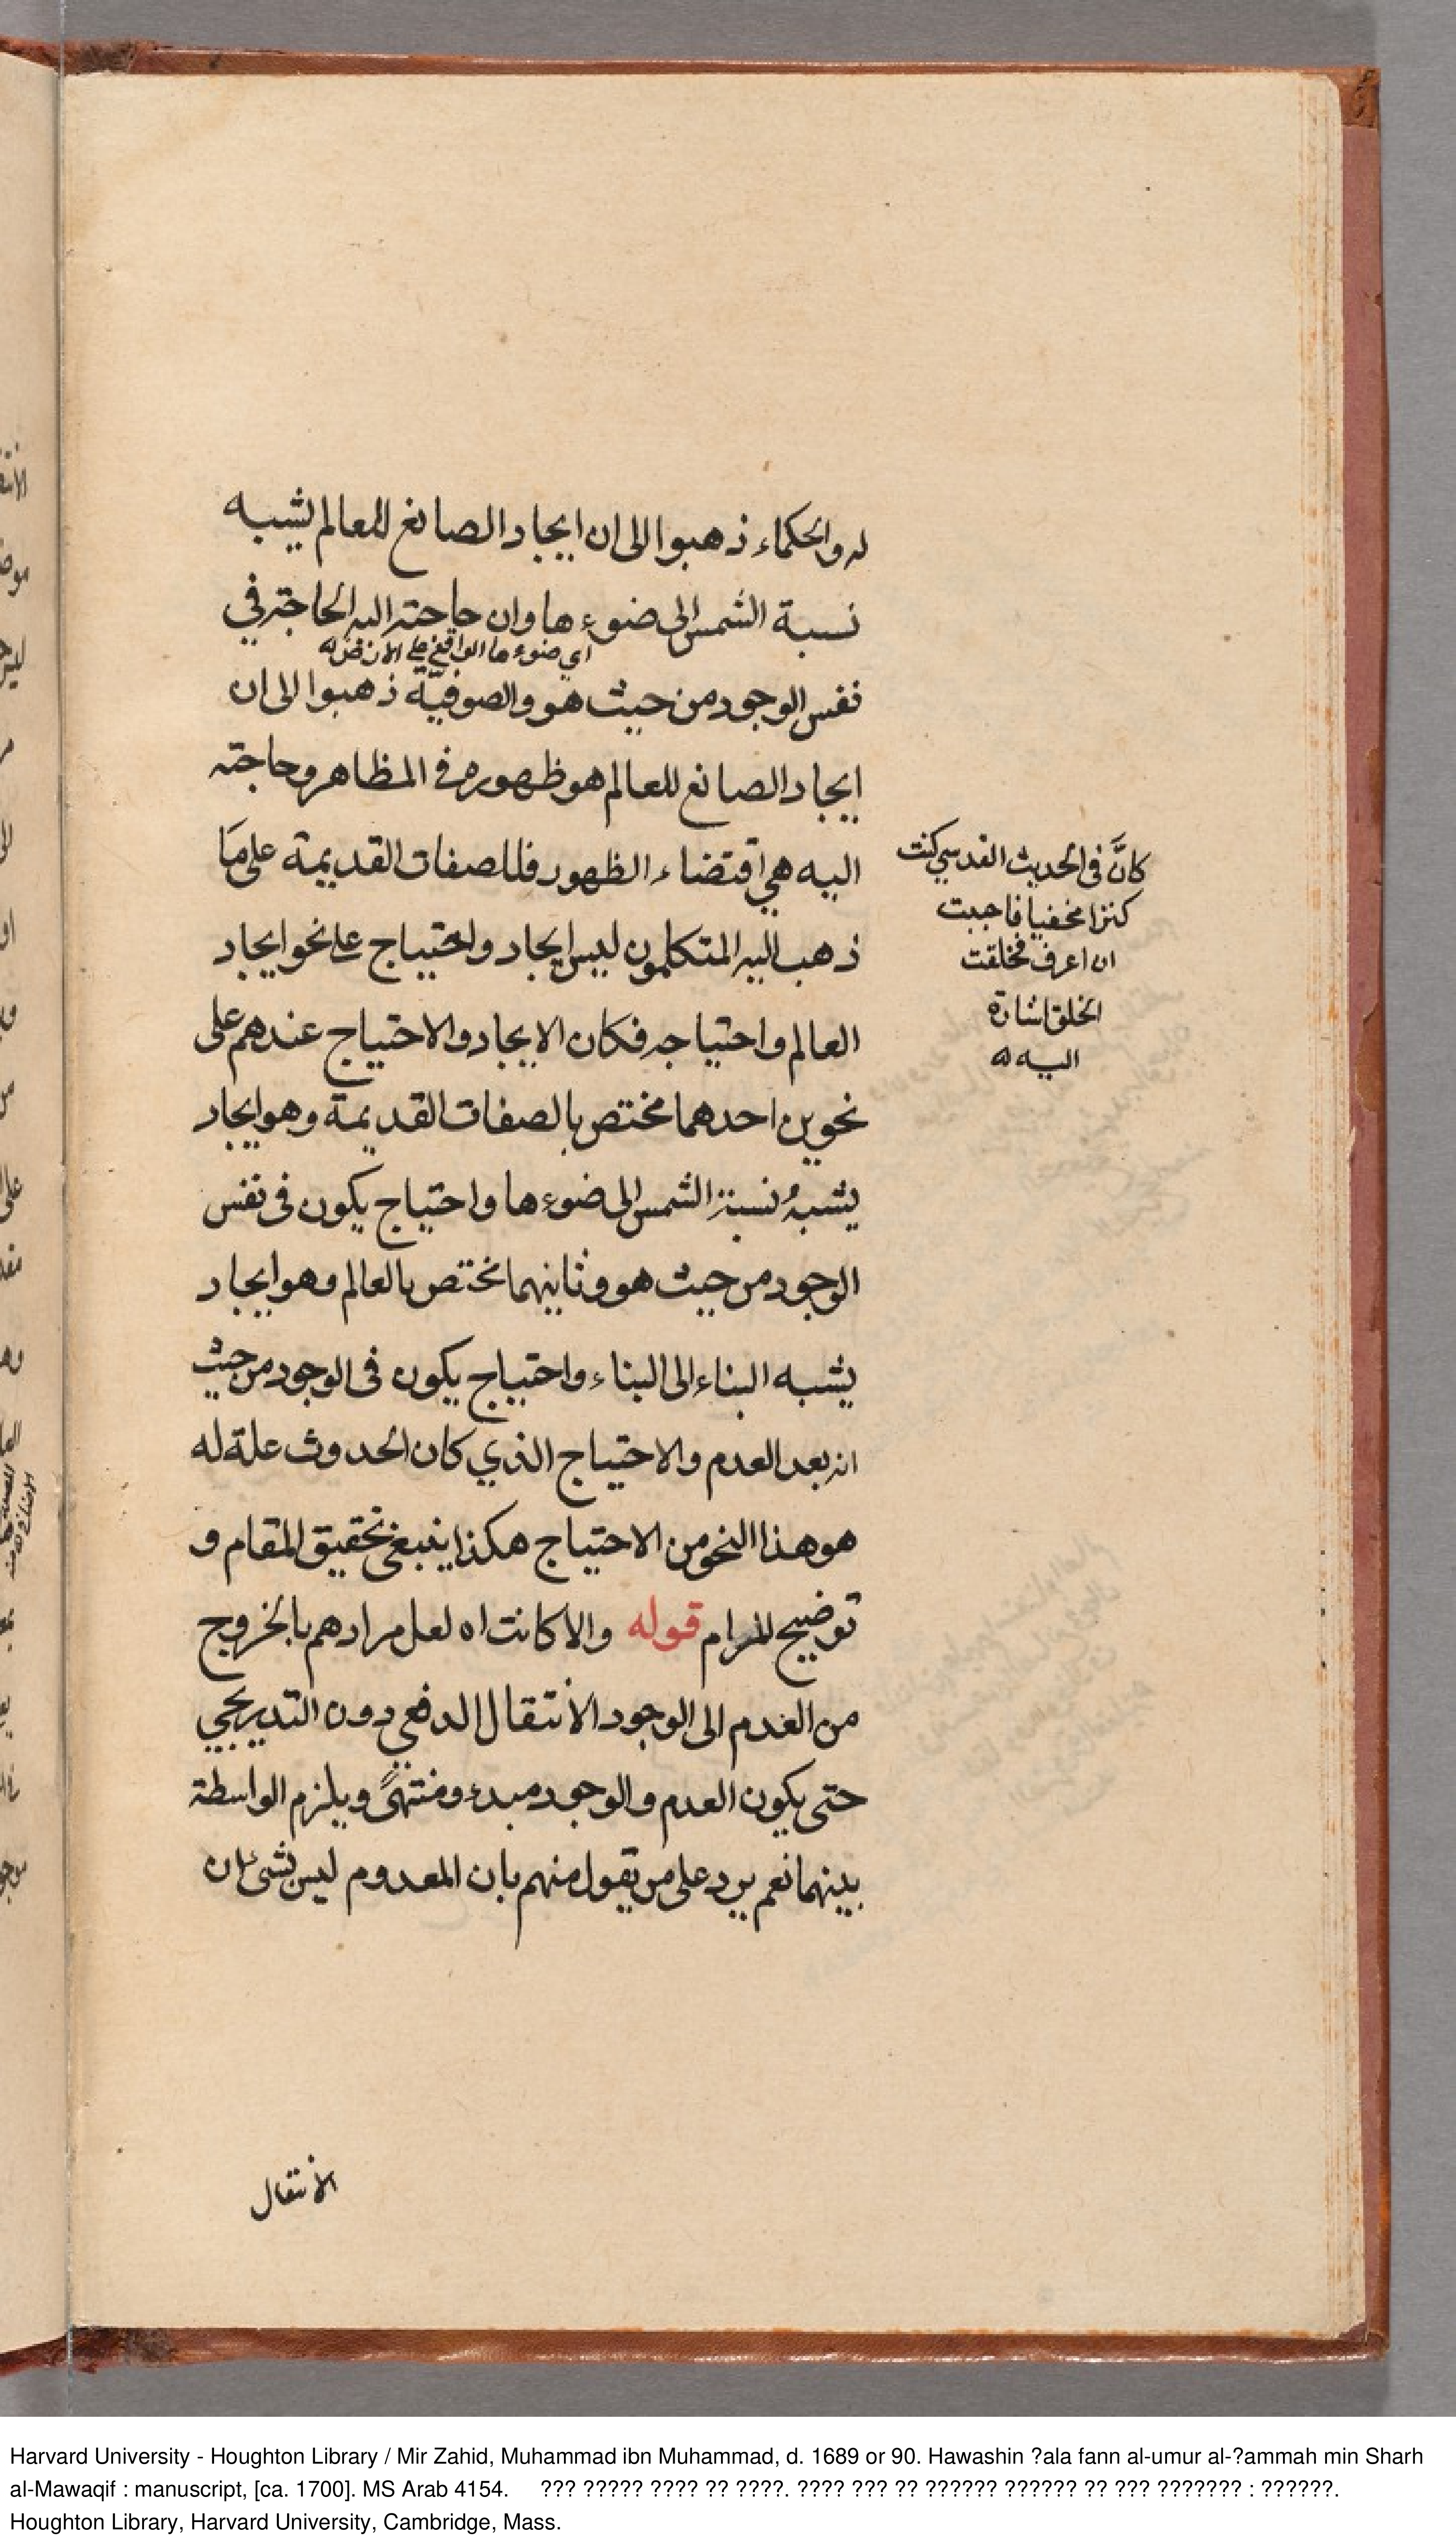 له والحكماء ذهبوا الى ان ايجاد الصانع للعالم يشبه
نسبة الشمس الى ضوءها وان حاجته اليه الحاجة في
اي ضوءها الواقع على الارض
نفس الوجود من حيث هو والصوفيّة ذهبوا الى ان
ايجاد الصانع للعالم هو ظهوره في المظاهر وحاجته
اليه هي اقتضاء الظهور فللصفات القديمة على ما
ذهب اليه المتكلمون ليس ايجاد واحتياج على نحو ايجاد
العالم واحتياجه فكان الايجاد والاحتياج عندهم على
نحوين احدهما مختص بالصفات القديمة وهو ايجاد
يشبهُ نسبة الشمس الى ضوءها واحتياج يكون في نفس
الوجود من حيث هو وثانيهما مختص بالعالم وهو ايجاد
يشبه البناء الى البناء واحتياج يكون في الوجود من حيث
انه بعد العدم والاحتياج الذي كان الحدوث علة له
هو هذا النحو من الاحتياج هكذا ينبغي تحقيق المقام و
توضيح المرام قوله والا كانت اه لعل مرادهم بالخروج
من العدم الى الوجود الانتقال الدفعي دون التدريجي
حتى يكون العدم والوجود مبدء ومنتهىً ويلزم الواسطة
بينهما نعم يرد على من يقول منهم بان المعدوم ليس بشئ ان
كانّ في الحديث القدسي كنت
كنزا مخفيا فاحببت
ان اعرف فخلقت
الخلق اشارة
اليه
الانتقال
Harvard University - Houghton Library / Mir Zahid, Muhammad ibn Muhammad, d. 1689 or 90. Hawashin ?ala fann al-umur al-?ammah min Sharh
al-Mawaqif : manuscript, [ca. 1700]. MS Arab 4154. ??? ????? ???? ?? ????. ???? ??? ?? ?????? ?????? ?? ??? ??????? : ??????.
Houghton Library, Harvard University, Cambridge, Mass.